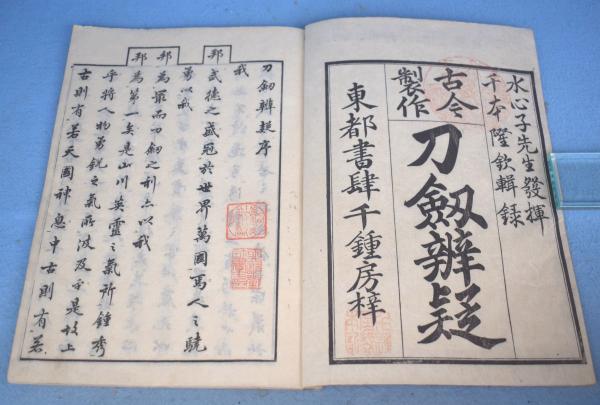 水心子先生發揮
千本隆欽輯録
古今
製作
刀劔辨疑
東都書肆千鍾房梓
刀劔辨疑序
我
邦武德之盛冠於世界萬國焉人之驍
勇以我
邦為最而刀劔之利亦以我
邦為第一矣是山川英靈之氣所鍾秀
乎將人物勇銳之氣所波及乎是故上
古則有若天國神息中古則有若